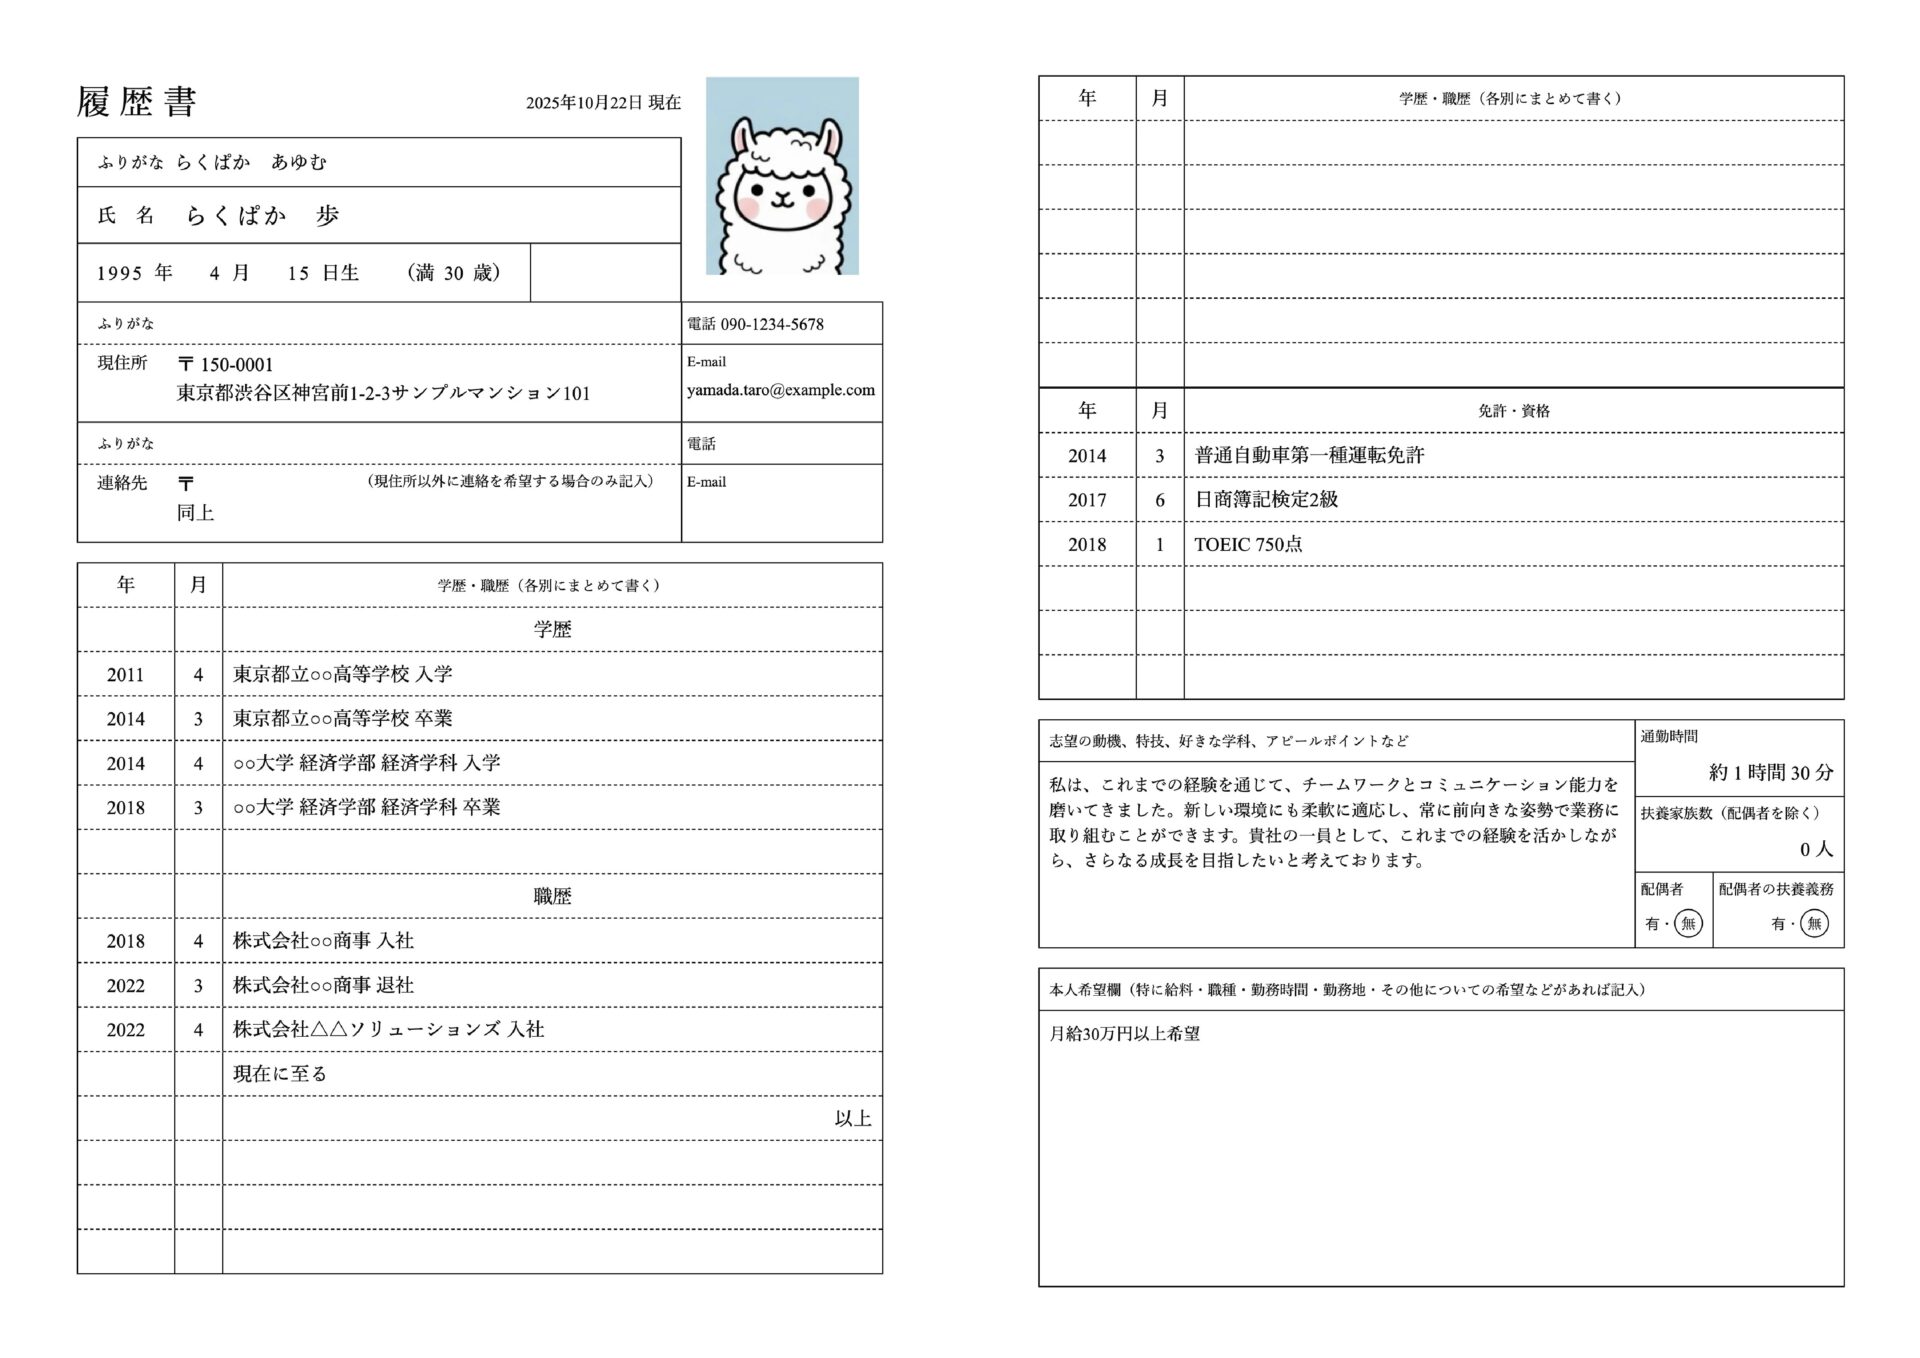 履歴書
2025年10月22日 現在
ふりがな らくぱか　あゆむ
氏　名　らくぱか　歩
1995 年　4 月　15 日生　（満 30 歳）
ふりがな
電話 090-1234-5678
現住所　〒 150-0001
東京都渋谷区神宮前1-2-3サンプルマンション101
E-mail
yamada.taro@example.com
ふりがな
電話
連絡先　〒　（現住所以外に連絡を希望する場合のみ記入）
同上
E-mail
年　月　学歴・職歴（各別にまとめて書く）
学歴
2011　4　東京都立○○高等学校 入学
2014　3　東京都立○○高等学校 卒業
2014　4　○○大学 経済学部 経済学科 入学
2018　3　○○大学 経済学部 経済学科 卒業
職歴
2018　4　株式会社○○商事 入社
2022　3　株式会社○○商事 退社
2022　4　株式会社△△ソリューションズ 入社
現在に至る
以上
年　月　学歴・職歴（各別にまとめて書く）
年　月　免許・資格
2014　3　普通自動車第一種運転免許
2017　6　日商簿記検定2級
2018　1　TOEIC 750点
志望の動機、特技、好きな学科、アピールポイントなど
私は、これまでの経験を通じて、チームワークとコミュニケーション能力を
磨いてきました。新しい環境にも柔軟に適応し、常に前向きな姿勢で業務に
取り組むことができます。貴社の一員として、これまでの経験を活かしなが
ら、さらなる成長を目指したいと考えております。
通勤時間
約 1 時間 30 分
扶養家族数（配偶者を除く）
0 人
配偶者
有・無
配偶者の扶養義務
有・無
本人希望欄（特に給料・職種・勤務時間・勤務地・その他についての希望などがあれば記入）
月給30万円以上希望